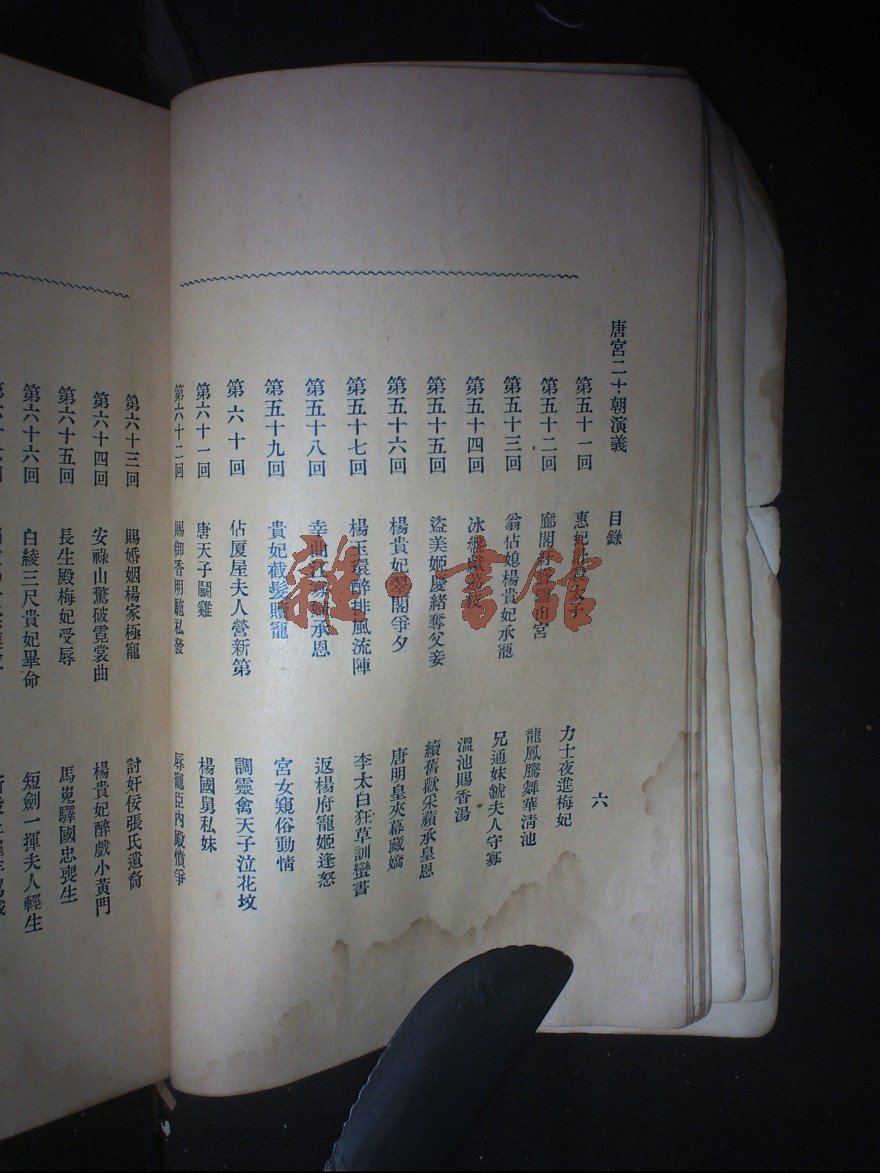 唐宮二十朝演義 目錄 六
第五十一回 惠妃 子 力士夜進梅妃
第五十二回 廊閣 宮 龍鳳騰舞華清池
第五十三回 翁佔媳楊貴妃承寵 兄通妹虢夫人守寡
第五十四回 冰 溫池賜香湯
第五十五回 盜美姬慶緒奪父妾 續舊歡采蘋承皇恩
第五十六回 楊貴妃翠閣爭夕 唐明皇夾幕藏嬌
第五十七回 楊玉環醉排風流陣 李太白狂草訓蠻書
第五十八回 幸曲江 承恩 返楊府寵姬逢怒
第五十九回 貴妃截髮贖寵 宮女窺俗動情
第六十回 佔厦屋夫人營新第 調靈禽天子泣花坟
第六十一回 唐天子鬭雞 楊國舅私妹
第六十二回 賜御香明駞私發 辱寵臣內殿憤爭
第六十三回 賜婚姻楊家極寵 討奸佞張氏遺裔
第六十四回 安祿山驚破霓裳曲 楊貴妃醉戲小黃門
第六十五回 長生殿梅妃受辱 馬嵬驛國忠喪生
第六十六回 白綾三尺貴妃畢命 短劍一揮夫人輕生
雜·書館